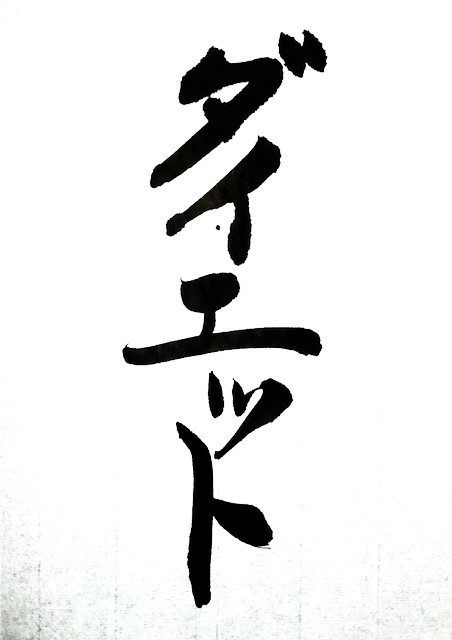 ダイエット